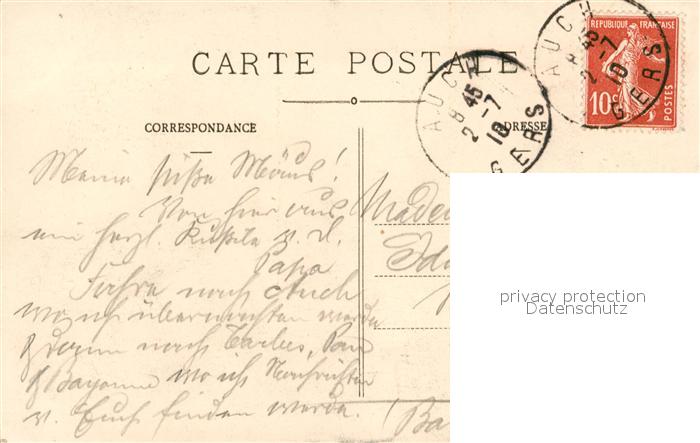 CARTE POSTALE
AUCH
8 45
2 -7
10
GERS
AUCH
8 45
2 -7
10
GERS
REPUBLIQUE FRANÇAISE
10c
POSTES
CORRESPONDANCE
ADRESSE
Meine süße Mäus!
Von hier aus
ein herzl. Küßle v. d.
Papa
Fahre nach Auch
wo ich übernachten werde
& dann nach Tarbes, Pau
& Bayonne wo ich Nachrichten
v. Euch finden werde.
Made
Ba
privacy protection
Datenschutz